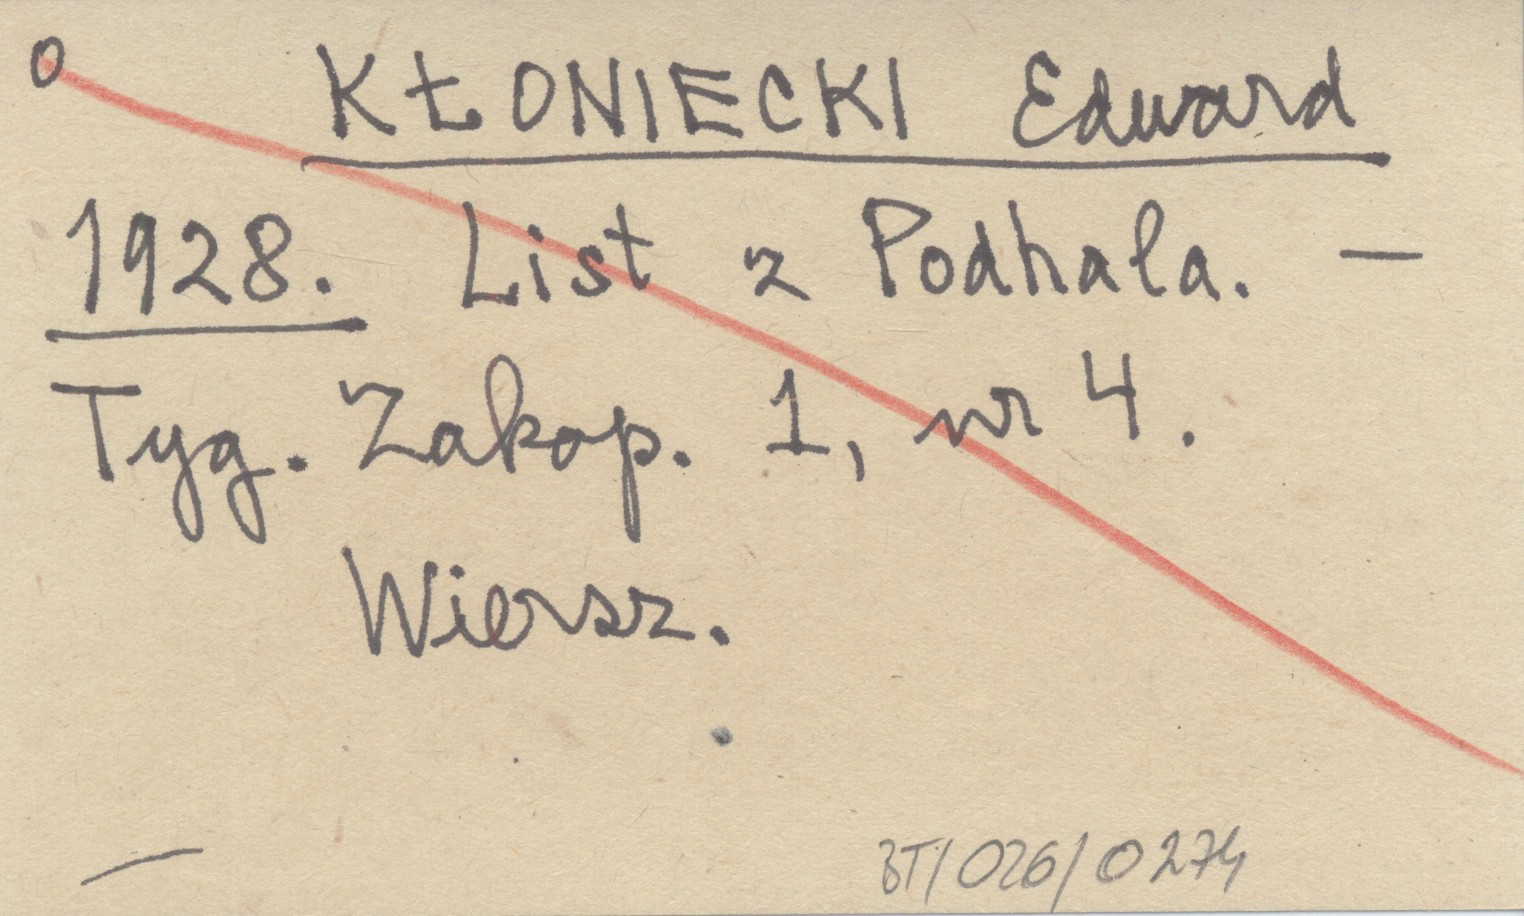 0 KŁONIECKI Edward
1928. List z Podhala. —
Tyg. Zakop. 1, nr 4.
Wiersz.
BT/026/0274